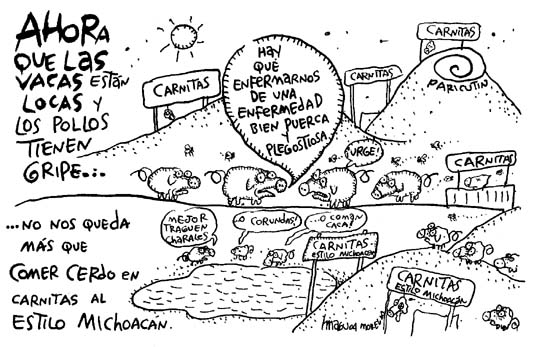 AHORA
QUE LAS
VACAS ESTÁN
LOCAS Y
LOS POLLOS
TIENEN
GRIPE...
CARNITAS
HAY
QUE
ENFERMARNOS
DE UNA
ENFERMEDAD
BIEN PUERCA
Y
PLEGOSTIOSA
¡URGE!
CARNITAS
CARNITAS
PARICUTIN
CARNITAS
...NO NOS QUEDA
MÁS QUE
COMER CERDO EN
CARNITAS AL
ESTILO MICHOACÁN.
MEJOR
TRAGUEN
CHARALES
...O CORUNDAS!
...O COMAN
CACA!
CARNITAS
ESTILO MICHOACÁN
CARNITAS
ESTILO MICHOACÁN